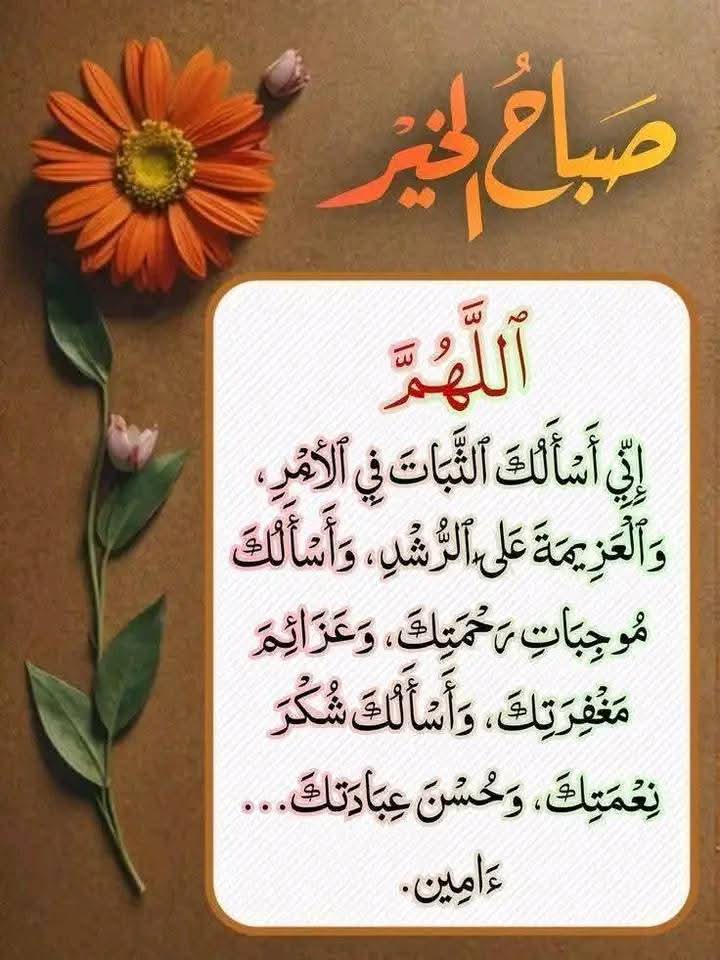 صَبَاحُ الخَيْر
ٱللَّهُمَّ
إِنِّي أَسْأَلُكَ ٱلثَّبَاتَ فِي ٱلأَمْرِ،
وَٱلْعَزِيمَةَ عَلَى ٱلرُّشْدِ، وَأَسْأَلُكَ
مُوجِبَاتِ رَحْمَتِكَ، وَعَزَائِمَ
مَغْفِرَتِكَ، وَأَسْأَلُكَ شُكْرَ
نِعْمَتِكَ، وَحُسْنَ عِبَادَتِكَ...
ءَامِين.